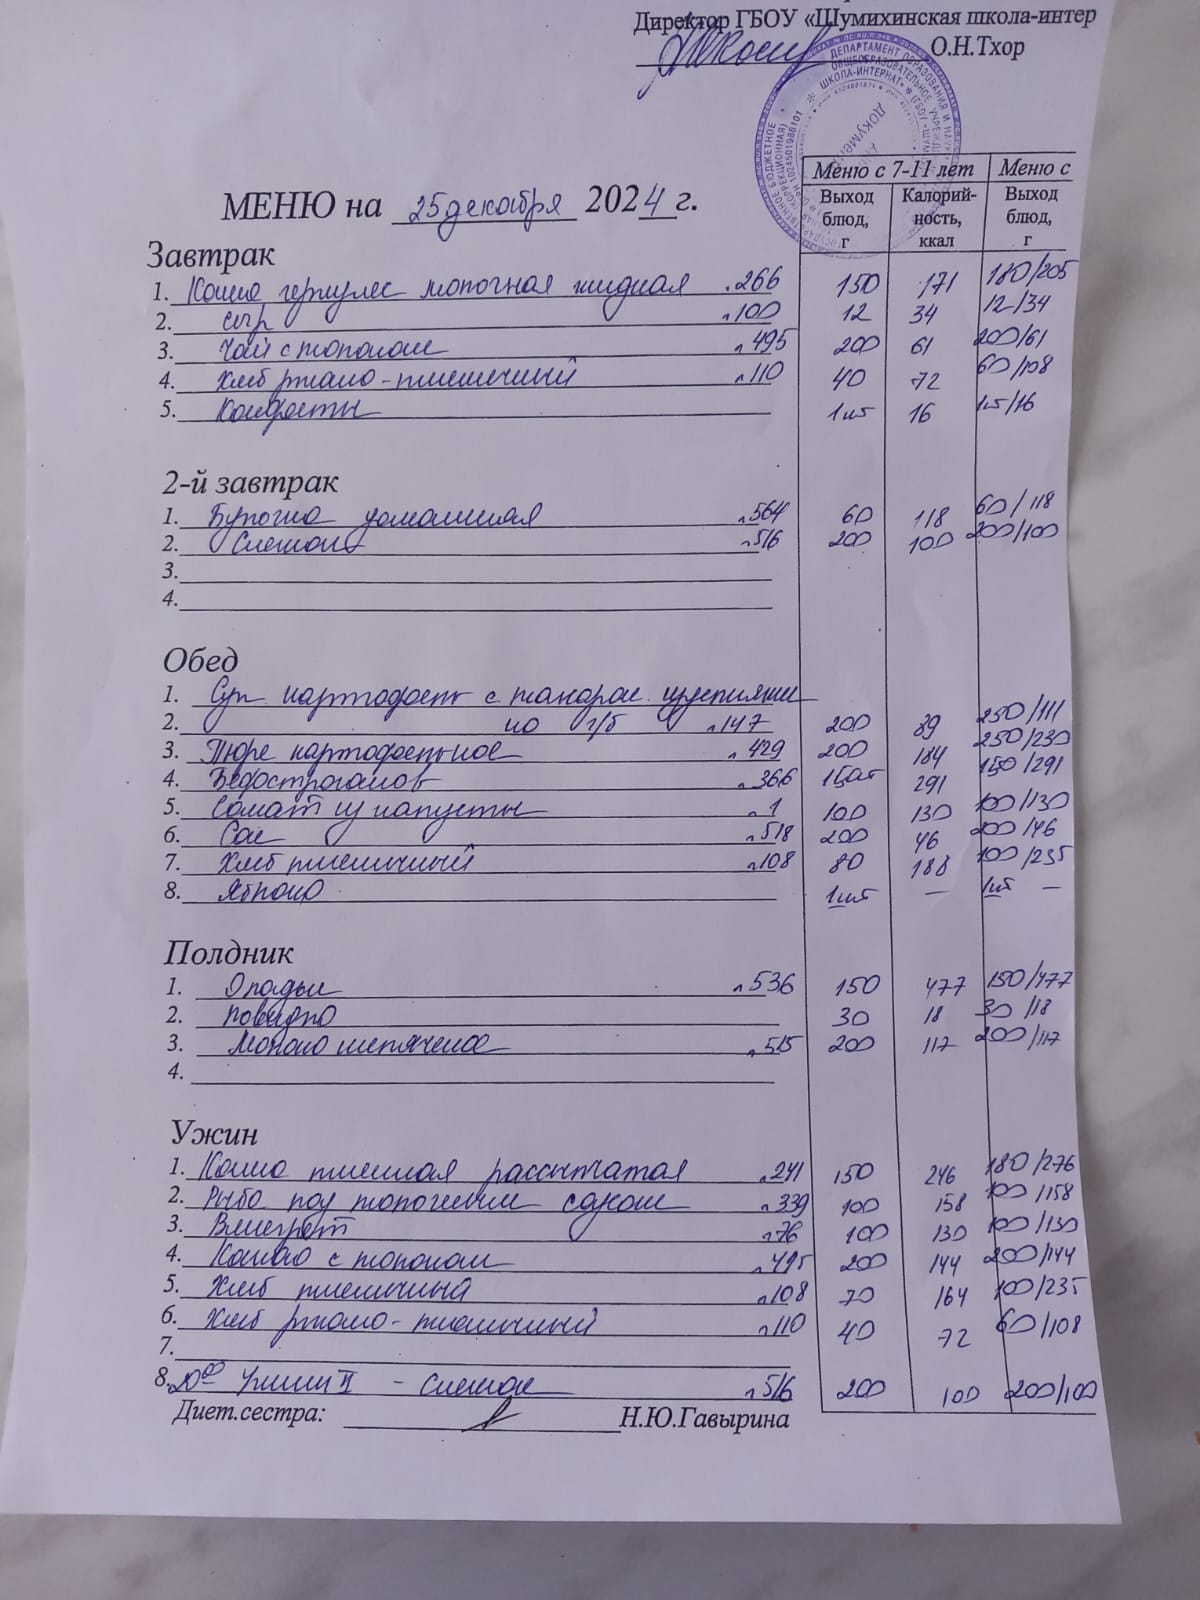 Директор ГБОУ «Шумихинская школа-интер
О.Н.Тхор
ДЕПАРТАМЕНТ ОБРАЗОВАНИЯ И НАУК
ОБЩЕОБРАЗОВАТЕЛЬНОЕ УЧРЕЖД
ШКОЛА-ИНТЕРНАТ»
Меню с 7-11 лет Меню с
Выход блюд, г Калорий-ность, ккал Выход блюд, г
МЕНЮ на 25 декабря 2024 г.
Завтрак
1. Каша геркулес молочная жидкая .266 150 171 180/205
2. сыр л100 12 34 12/34
3. Чай с молоком л495 200 61 200/61
4. Хлеб ржано-пшеничный л110 40 72 60/108
5. Конфеты 1шт 16 1шт/16
2-й завтрак
1. Булочка домашняя л564 60 118 60/118
2. Снежок л516 200 100 200/100
3.
4.
Обед
1. Суп картофель с макарон. изделиями
2. на г/б л147 200 89 250/111
3. Пюре картофельное л429 200 184 250/230
4. Бефстроганов л366 291 150/291
5. Салат из капусты л1 100 130 100/130
6. Сок л518 200 46 200/46
7. Хлеб пшеничный л108 80 188 100/235
8. Яблоко 1шт — 1шт —
Полдник
1. Оладьи л536 150 477 150/477
2. повидло 30 18 30/18
3. Молоко кипяченое л515 200 117 200/117
4.
Ужин
1. Каша пшенная рассыпчатая л241 150 246 180/276
2. Рыба под молочным соусом л339 100 158 100/158
3. Винегрет л76 100 130 100/130
4. Какао с молоком л495 200 144 200/144
5. Хлеб пшенична л108 70 164 100/235
6. Хлеб ржано-пшеничный л110 40 72 60/108
7.
8. 20⁰⁰ Ужин II - снежок л516 200 100 200/100
Диет.сестра: Н.Ю.Гавырина